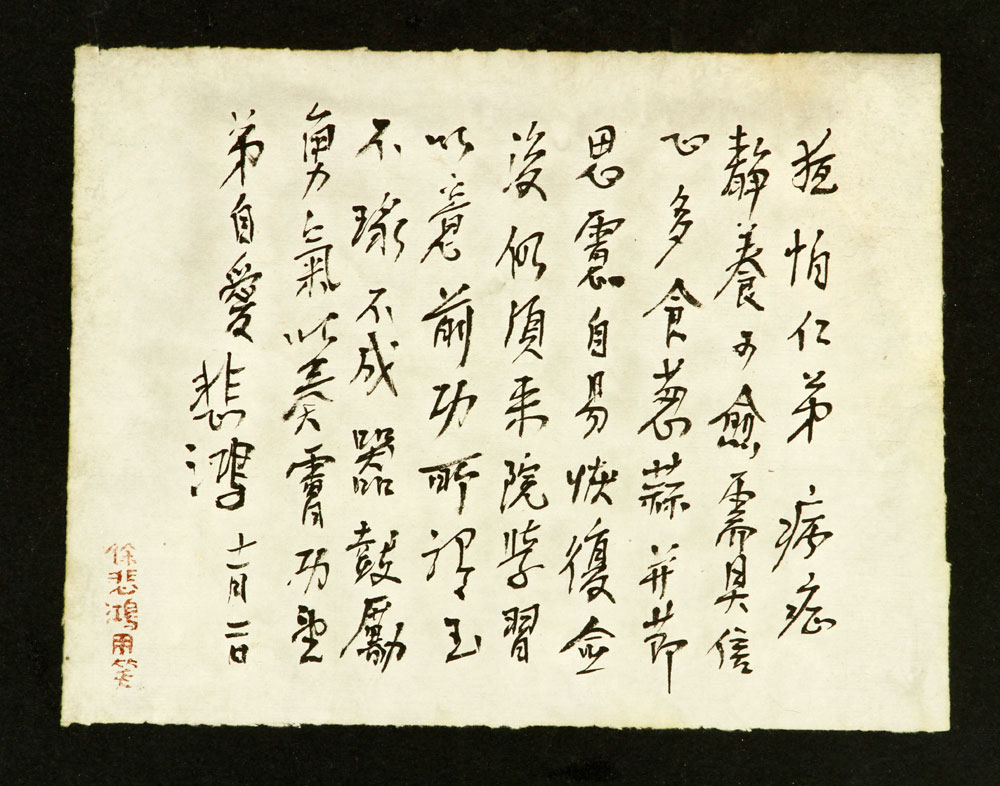 仁弟 病症
靜養可愈需具信
心多食葱蒜并節
思慮自易恢復愈
後仍須來院學習
以竟前功所謂玉
不琢不成器鼓勵
勇氣以奏膚功望
弟自愛 悲鴻 十一月二日
徐悲鴻用箋